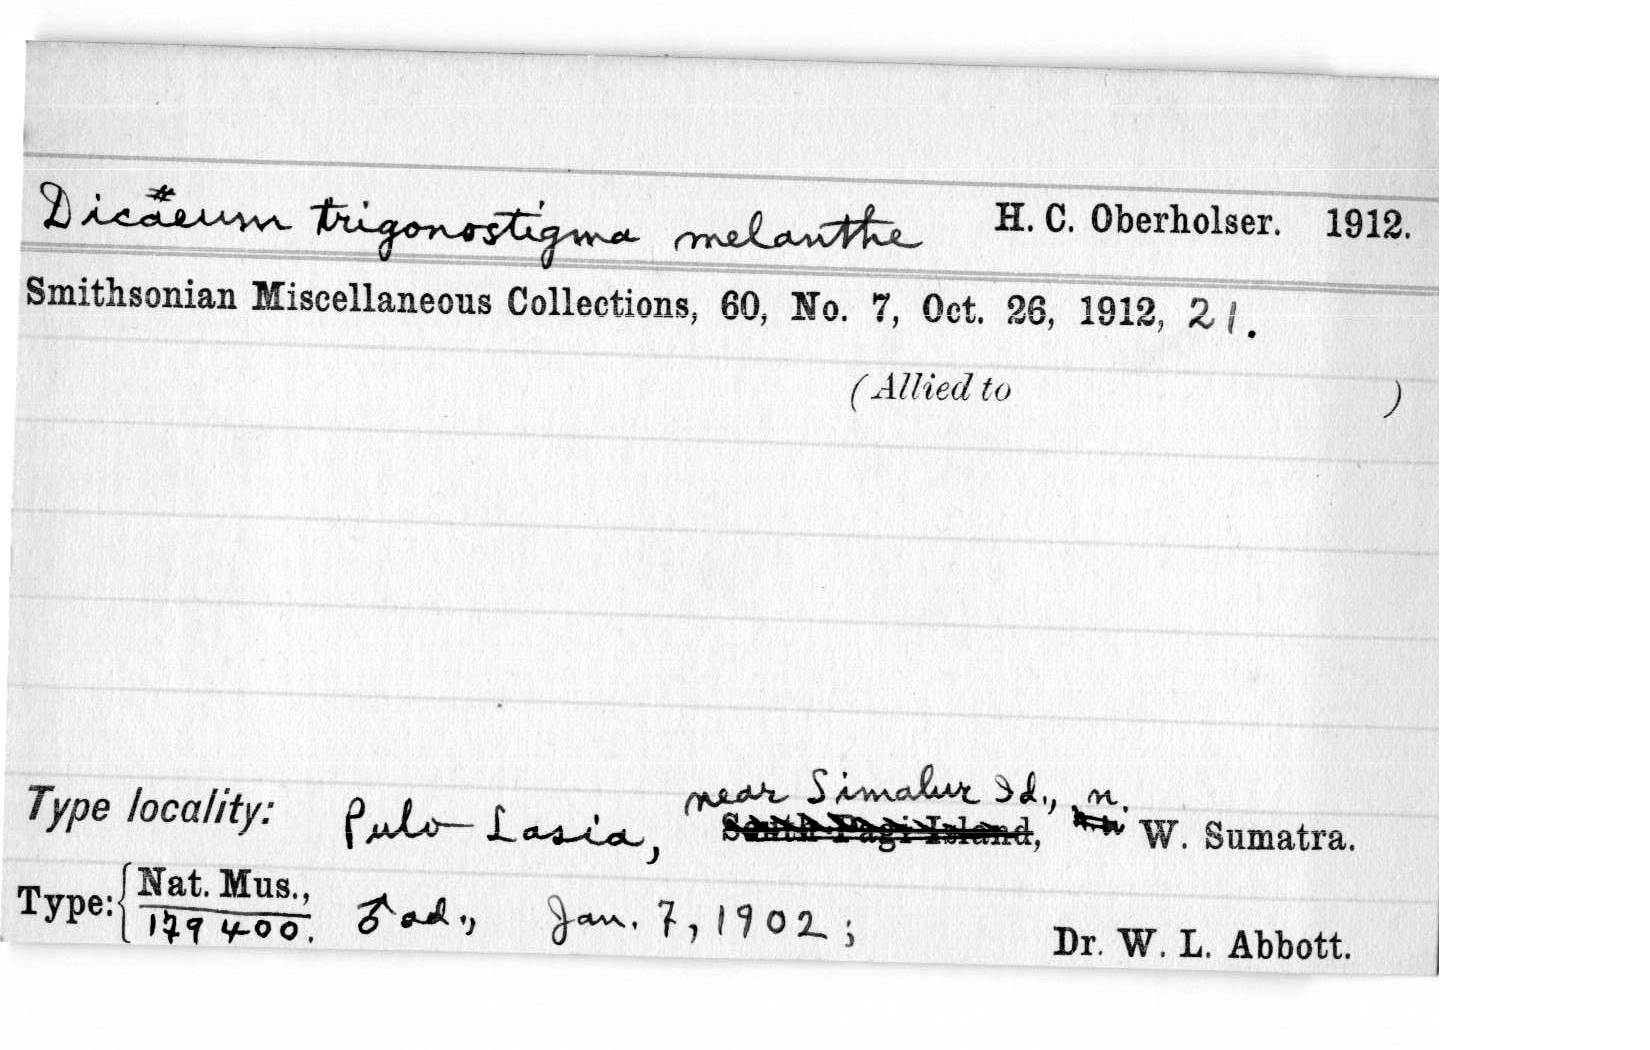 Dicaeum trigonostigma melanthe H. C. Oberholser. 1912.
Smithsonian Miscellaneous Collections, 60, No. 7, Oct. 26, 1912, 21.
(Allied to )
near Simalur Id., n.
Type locality: Pulo Lasia, South Pagi Island, W. Sumatra.
Type: { Nat. Mus., 179400. ♂ ad., Jan. 7, 1902; Dr. W. L. Abbott.